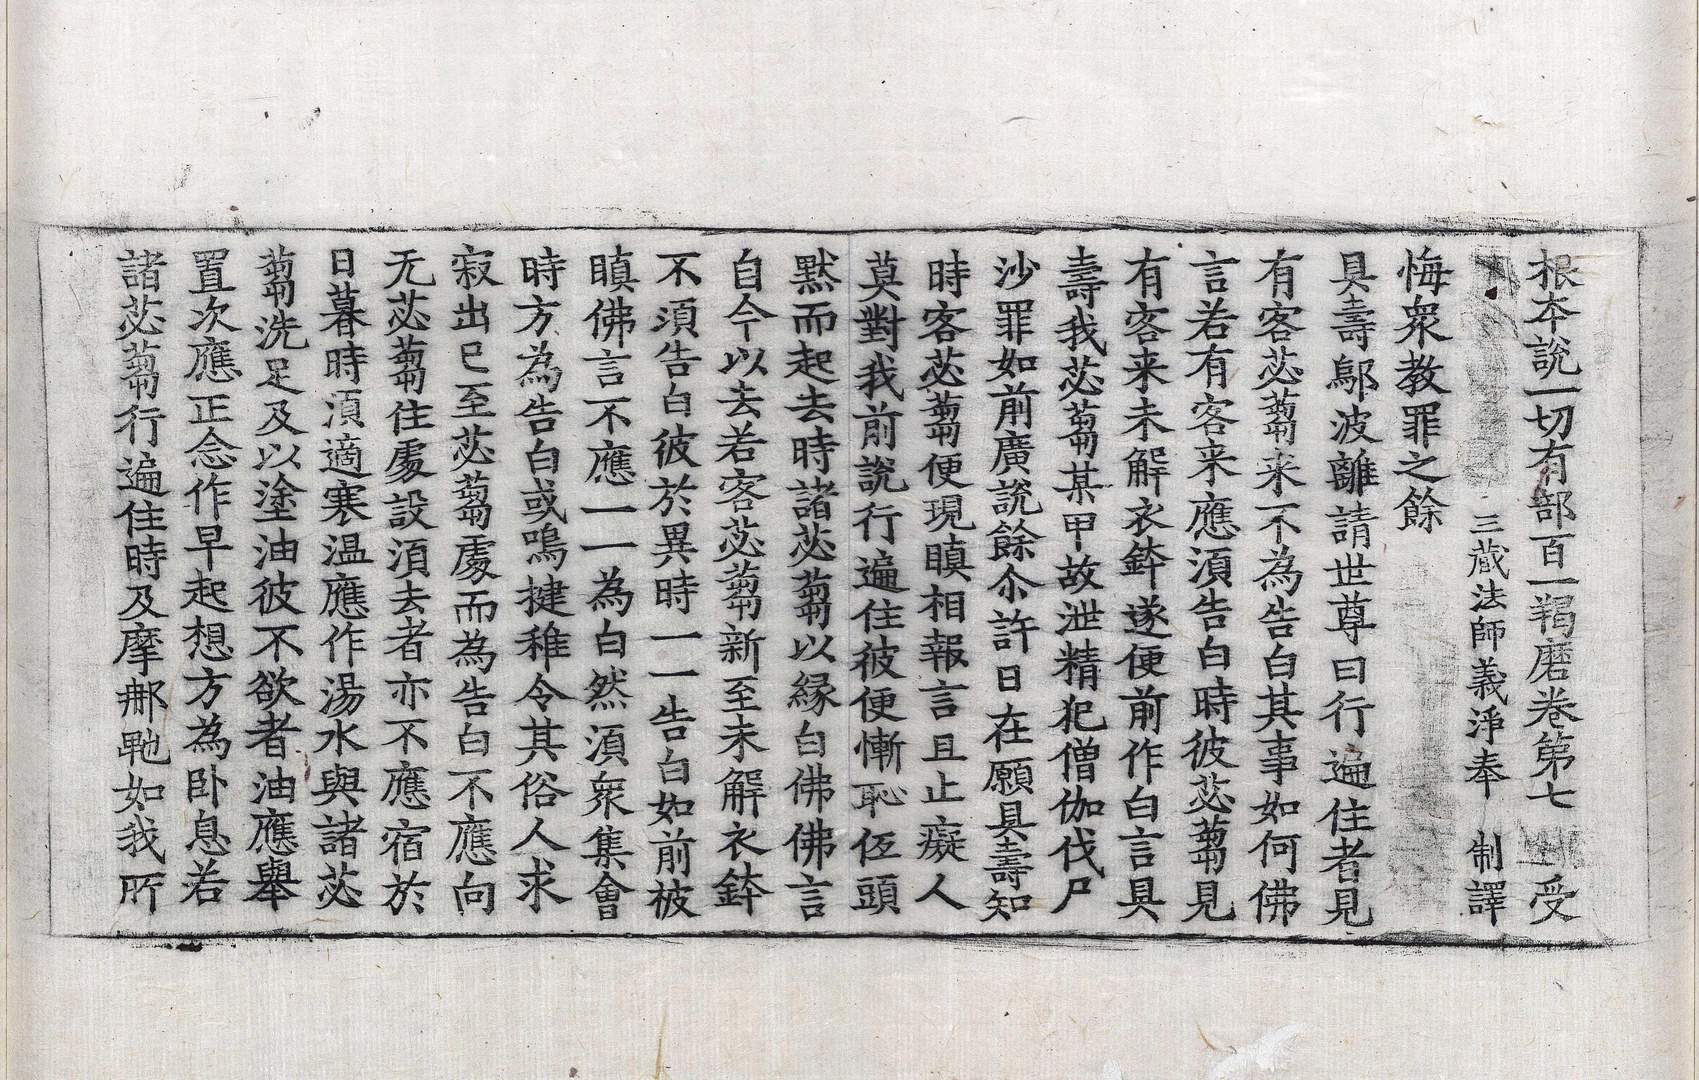 根本說一切有部百一羯磨卷第七 受
三藏法師義淨奉 制譯
悔衆教罪之餘
具壽鄔波離請世尊曰行遍住者見
有客苾蒭来不為告白其事如何佛
言若有客来應湏告白時彼苾蒭見
有客来未解衣鉢遂便前作白言具
壽我苾蒭某甲故泄精犯僧伽伐尸
沙罪如前廣說餘尒許日在願具壽知
時客苾蒭便現瞋相報言且止癡人
莫對我前說行遍住彼便慚恥伍頭
黙而起去時諸苾蒭以緣白佛佛言
自今以去若客苾蒭新至未解衣鉢
不湏告白彼於異時一一告白如前被
瞋佛言不應一一為白然湏衆集會
時方為告白或鳴揵稚令其俗人求
寂出巳至苾蒭處而為告白不應向
无苾蒭住處設湏去者亦不應宿於
日暮時湏適寒温應作湯水與諸苾
蒭洗足及以塗油彼不欲者油應舉
置次應正念作早起想方為卧息若
諸苾蒭行遍住時及摩那𠰷如我所